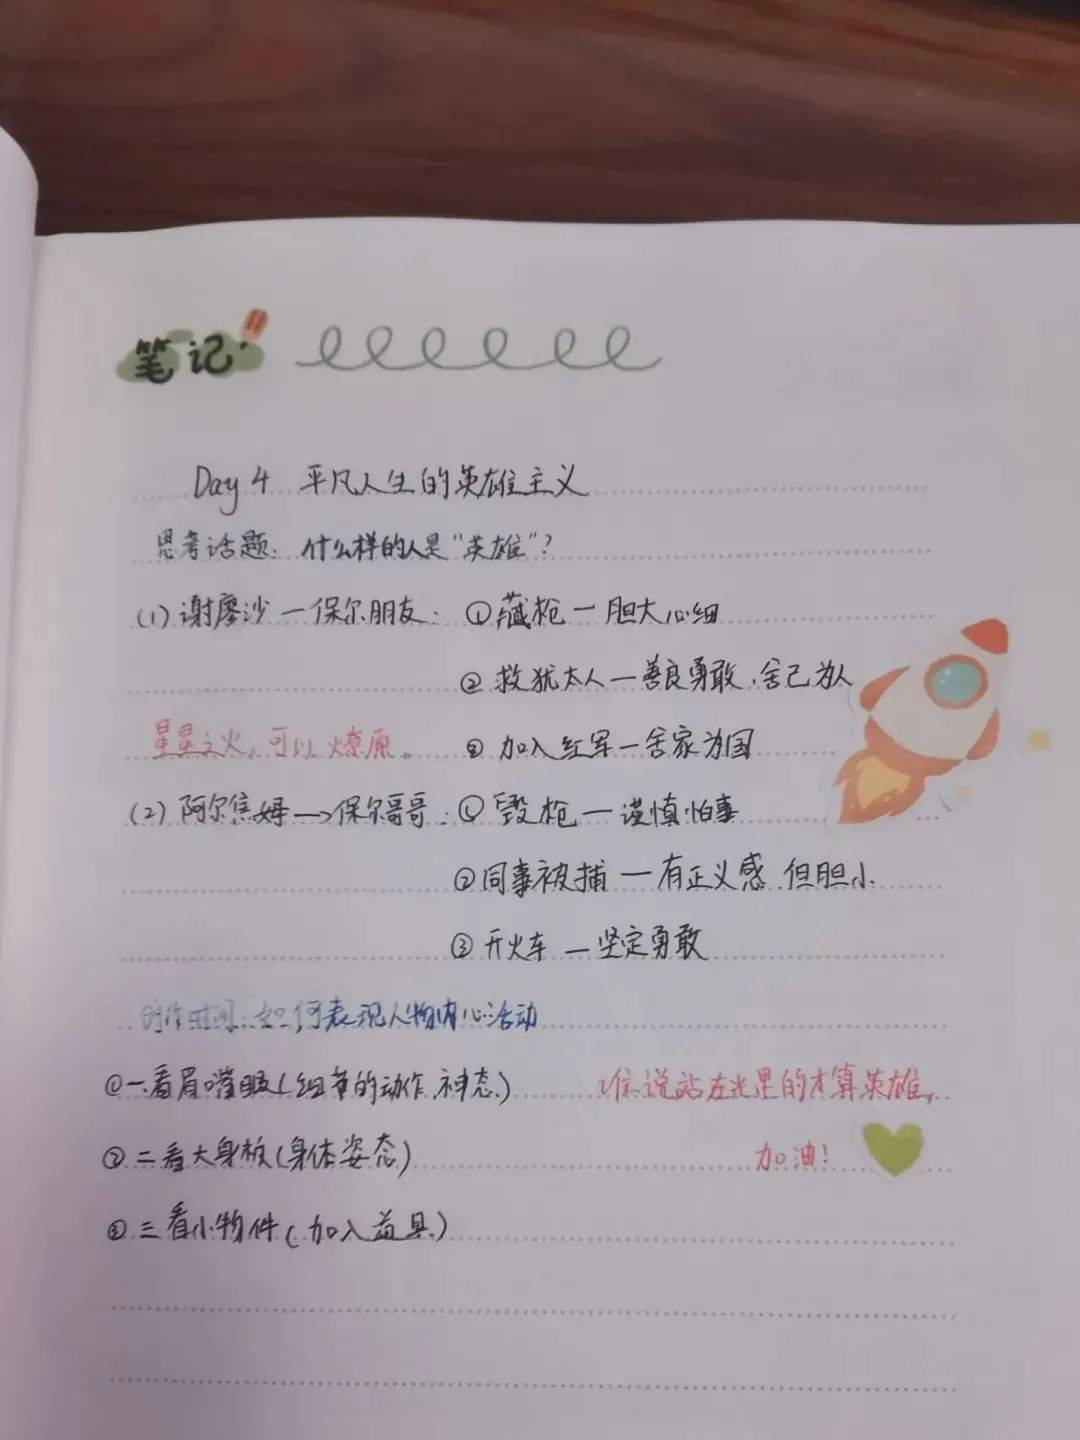 笔记
Day 4 平凡人生的英雄主义
思考话题：什么样的人是“英雄”？
(1) 谢廖沙一保尔朋友：①藏枪一胆大心细
②救犹太人一善良勇敢、舍己为人
星星之火，可以燎原。 ③加入红军一舍家为国
(2) 阿尔焦姆一>保尔哥哥：①毁枪一谨慎怕事
②同事被捕一有正义感、但胆小
③开火车一坚定勇敢
创作时间：如何表现人物内心活动
①一看眉嘴眼(细节的动作、神态) 谁说站在光里的才算英雄，
②二看大身板(身体姿态) 加油！
③三看小物件(加入道具)